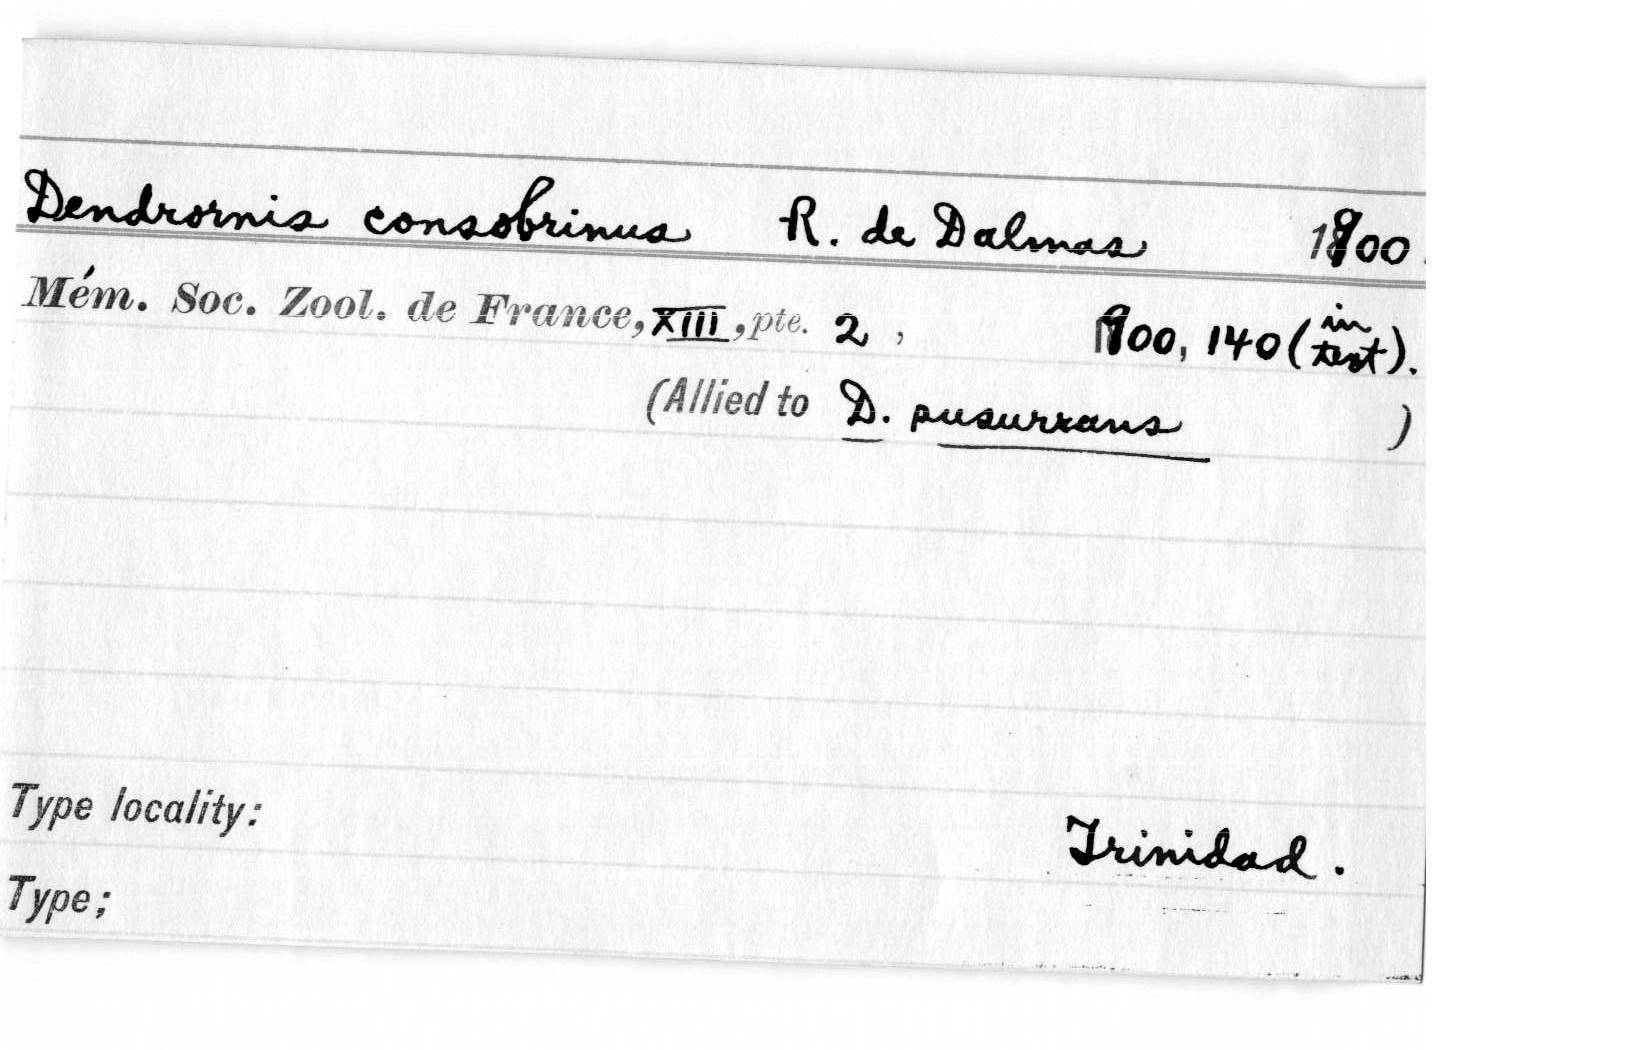 Dendrornis consobrinus R. de Dalmas 1900.
Mém. Soc. Zool. de France, XIII, pte. 2, 1900, 140 (in text).
(Allied to D. susurrans )
Type locality: Trinidad.
Type;